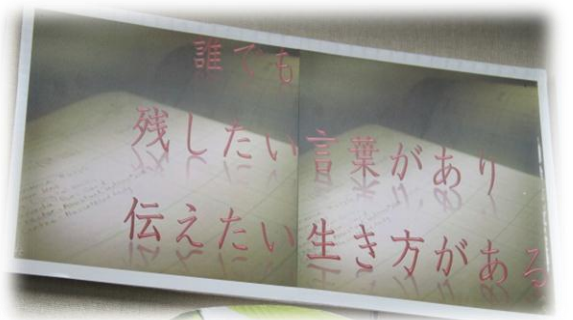 誰でも
残したい言葉があり
伝えたい生き方がある